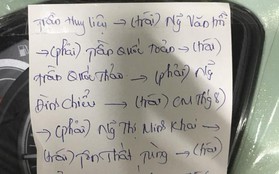 Trần Huy Liệu → (trái) Ng Văn Trỗi
→ (phải) Trần Quốc Toản → (trái)
Trần Quốc Thảo → (phải) Ng
Đình Chiểu → (trái) CM Thg 8
→ (phải) Ng Thị Minh Khai →
(trái) Tôn Thất Tùng → (trái)